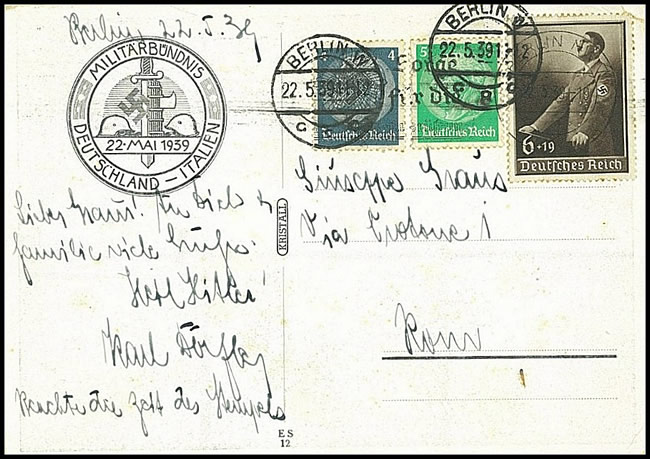 Berlin 22.5.39
MILITÄRBÜNDNIS
22·MAI 1939
DEUTSCHLAND – ITALIEN
BERLIN N
22.5.39
C
4
Deutsches Reich
5
Deutsches Reich
BERLIN
22.5.39
6+19
Deutsches Reich
Giuseppe Graus
Via Crotone 1
Rom
KRISTALL
Lieber Graus! Dir &
Familie viele Grüße.
Heil Hitler!
Karl
Beachte die Zeit des Stempels
ES
12